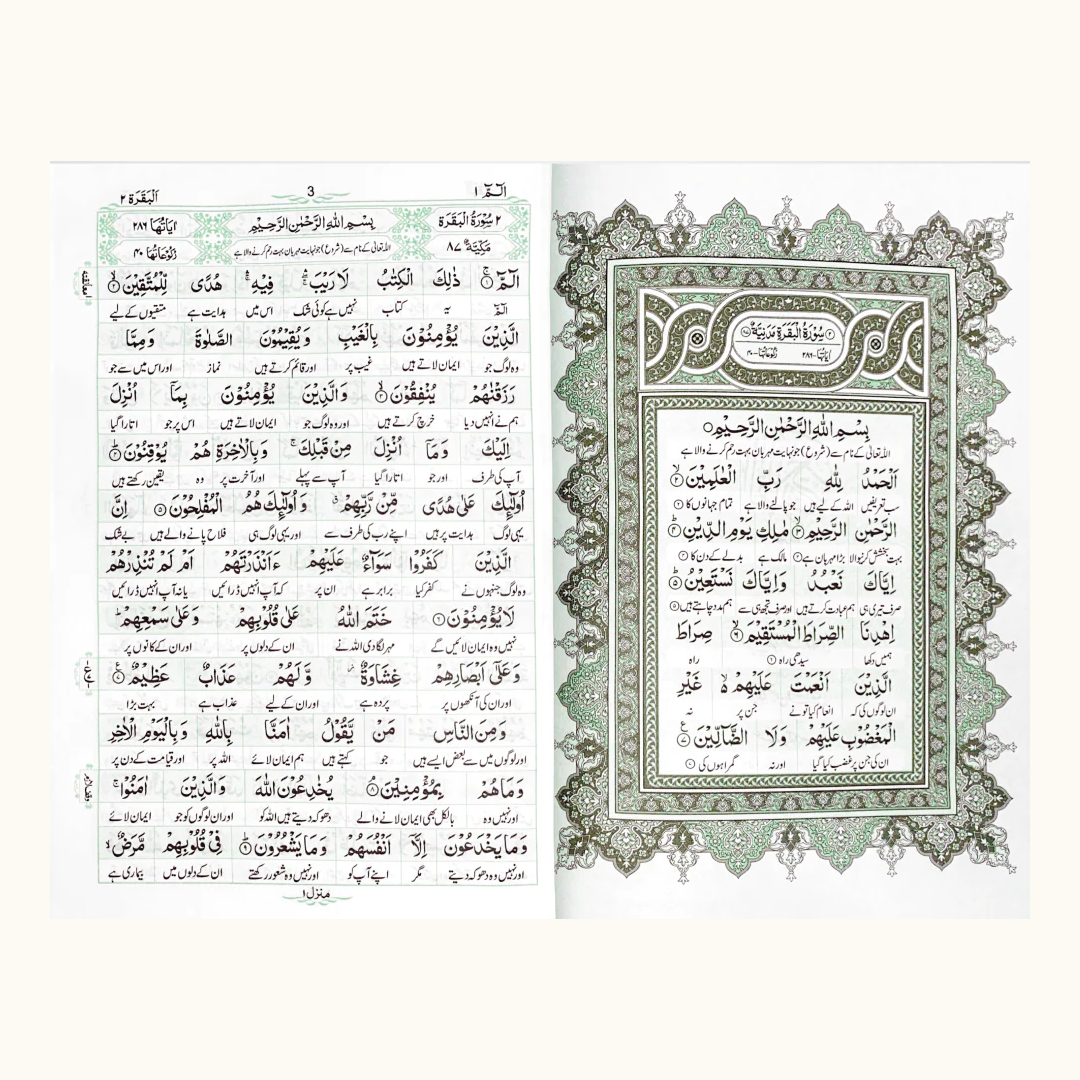 ٢ سُوْرَةُ الْبَقَرَةِ مَدَنِيَّةٌ ٨٧
اٰيَاتُهَا-٢٨٦ رُكُوْعَاتُهَا-٤٠
بِسْمِ اللهِ الرَّحْمٰنِ الرَّحِيْمِ
اللہ تعالیٰ کے نام سے (شروع) جو نہایت مہربان بہت رحم کرنے والا ہے
اَلْحَمْدُ لِلّٰهِ رَبِّ الْعٰلَمِيْنَ ۙ
سب تعریفیں اللہ کے لیے ہیں جو پالنے والا ہے تمام جہانوں کا
الرَّحْمٰنِ الرَّحِيْمِ ۙ مٰلِكِ يَوْمِ الدِّيْنِ ؕ
بہت بخشش کرنیوالا بڑا مہربان ہے مالک ہے بدلے کے دن کا
اِيَّاكَ نَعْبُدُ وَاِيَّاكَ نَسْتَعِيْنُ ؕ
صرف تیری ہی ہم عبادت کرتے ہیں اور صرف تجھ ہی سے ہم مدد چاہتے ہیں
اِهْدِنَا الصِّرَاطَ الْمُسْتَقِيْمَ ۙ صِرَاطَ
ہمیں دکھا سیدھی راہ راہ
الَّذِيْنَ اَنْعَمْتَ عَلَيْهِمْ ۙ غَيْرِ
ان لوگوں کی کہ انعام کیا تو نے جن پر نہ
الْمَغْضُوْبِ عَلَيْهِمْ وَلَا الضَّآلِّيْنَ
ان کی جن پر غضب کیا گیا اور نہ گمراہوں کی
الٓـمّٓ ١ 3 اَلْبَقَرَة ٢
٢ سُوْرَةُ الْبَقَرَةِ بِسْمِ اللهِ الرَّحْمٰنِ الرَّحِيْمِ اٰيَاتُهَا ٢٨٦
مَكِّيَّةٌ ٨٧ اللہ تعالیٰ کے نام سے (شروع) جو نہایت مہربان بہت رحم کرنے والا ہے رُكُوْعَاتُهَا ٤٠
الٓمّٓ ۚ ذٰلِكَ الْكِتٰبُ لَا رَيْبَ ۛ فِيْهِ ۛ هُدًى لِّلْمُتَّقِيْنَ ۙ
الٓمّٓ یہ کتاب نہیں ہے کوئی شک اس میں ہدایت ہے متقیوں کے لیے
الَّذِيْنَ يُؤْمِنُوْنَ بِالْغَيْبِ وَيُقِيْمُوْنَ الصَّلٰوةَ وَمِمَّا
وہ لوگ جو ایمان لاتے ہیں غیب پر اور قائم کرتے ہیں نماز اور اس میں سے جو
رَزَقْنٰهُمْ يُنْفِقُوْنَ ۙ وَالَّذِيْنَ يُؤْمِنُوْنَ بِمَآ اُنْزِلَ
ہم نے انہیں دیا خرچ کرتے ہیں اور وہ لوگ جو ایمان لاتے ہیں اس پر جو اتارا گیا
اِلَيْكَ وَمَآ اُنْزِلَ مِنْ قَبْلِكَ ۚ وَبِالْاٰخِرَةِ هُمْ يُوْقِنُوْنَ ؕ
آپ کی طرف اور جو اتارا گیا آپ سے پہلے اور آخرت پر وہ یقین رکھتے ہیں
اُولٰٓئِكَ عَلٰى هُدًى مِّنْ رَّبِّهِمْ ۗ وَاُولٰٓئِكَ هُمُ الْمُفْلِحُوْنَ ٥ اِنَّ
یہی لوگ ہدایت پر ہیں اپنے رب کی طرف سے اور یہی لوگ ہی فلاح پانے والے ہیں بے شک
الَّذِيْنَ كَفَرُوْا سَوَآءٌ عَلَيْهِمْ ءَاَنْذَرْتَهُمْ اَمْ لَمْ تُنْذِرْهُمْ
وہ لوگ جنہوں نے کفر کیا برابر ہے ان پر کہ آپ انہیں ڈرائیں یا نہ آپ انہیں ڈرائیں
لَا يُؤْمِنُوْنَ ٦ خَتَمَ اللهُ عَلٰى قُلُوْبِهِمْ وَعَلٰى سَمْعِهِمْ ؕ
نہیں وہ ایمان لائیں گے مہر لگا دی اللہ نے ان کے دلوں پر اور ان کے کانوں پر
وَعَلٰٓى اَبْصَارِهِمْ غِشَاوَةٌ وَّلَهُمْ عَذَابٌ عَظِيْمٌ
اور ان کی آنکھوں پر پردہ ہے اور ان کے لیے عذاب ہے بہت بڑا
وَمِنَ النَّاسِ مَنْ يَّقُوْلُ اٰمَنَّا بِاللهِ وَبِالْيَوْمِ الْاٰخِرِ
اور لوگوں میں سے بعض ایسے ہیں جو کہتے ہیں ہم ایمان لائے اللہ پر اور قیامت کے دن پر
وَمَا هُمْ بِمُؤْمِنِيْنَ ٨ يُخٰدِعُوْنَ اللهَ وَالَّذِيْنَ اٰمَنُوْا ۚ
اور نہیں وہ بالکل بھی ایمان لانے والے دھوکہ دیتے ہیں اللہ کو اور ان لوگوں کو جو ایمان لائے
وَمَا يَخْدَعُوْنَ اِلَّآ اَنْفُسَهُمْ وَمَا يَشْعُرُوْنَ ؕ فِيْ قُلُوْبِهِمْ مَّرَضٌ ۙ
اور نہیں وہ دھوکہ دیتے مگر اپنے آپ کو اور نہیں وہ شعور رکھتے ان کے دلوں میں بیماری ہے
منزل ١